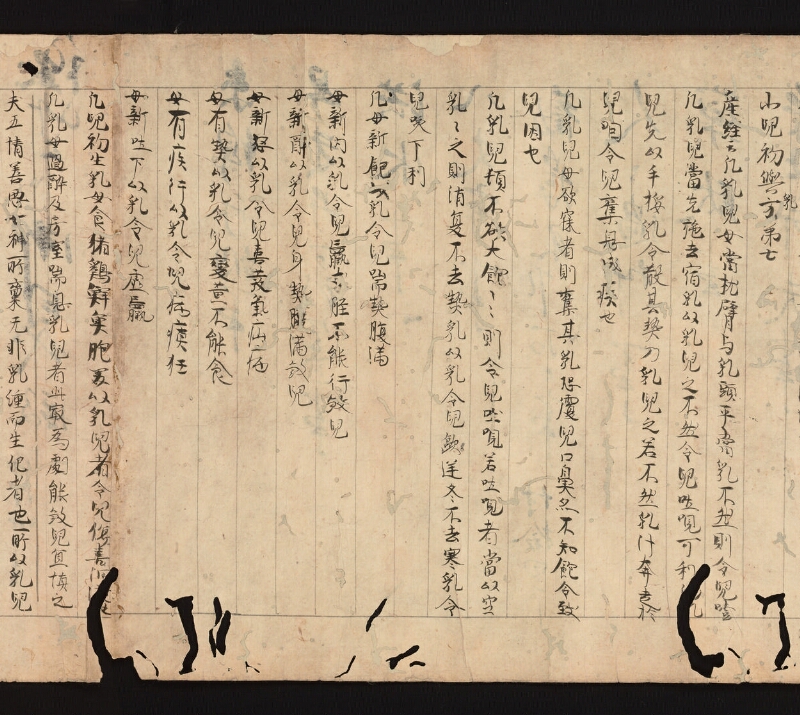 小兒初與乳方第七
産經云凡乳兒母當枕臂与乳頭平乃乳不然則令兒噎
凡乳兒當先施去宿乳以乳兒之不然令兒吐哯可利凡乳
兒先以手按乳令散其熱乃乳兒之若不然乳汁奔走於
兒咽令兒棄息成疾也
凡乳兒母欲寐者則棄其乳恐覆兒口鼻亦不知飽令致
兒困也
凡乳兒頓不欲大飽〻則令兒吐哯若吐哯者當以空
乳〻之則消夏不去熱乳以乳令兒歐逆冬不去寒乳令
兒咳下利
凡母新飽以乳令兒喘熱腹滿
母新内以乳令兒羸交脛不能行殺兒
母新醉以乳令兒身熱腹滿殺兒
母新怒以乳令兒喜發氣疝病狂
母有熱以乳令兒變黄不能食
母有疾行以乳令兒病癲狂
母新吐下以乳令兒虚羸
凡兒初生乳母食猪鷄鮮魚肥 以乳兒者令兒傷善
凡乳母過醉及房室喘息乳兒者此最爲劇能殺兒宜慎之
夫五情善惡七神所稟无非乳湩而生化者也所以乳兒